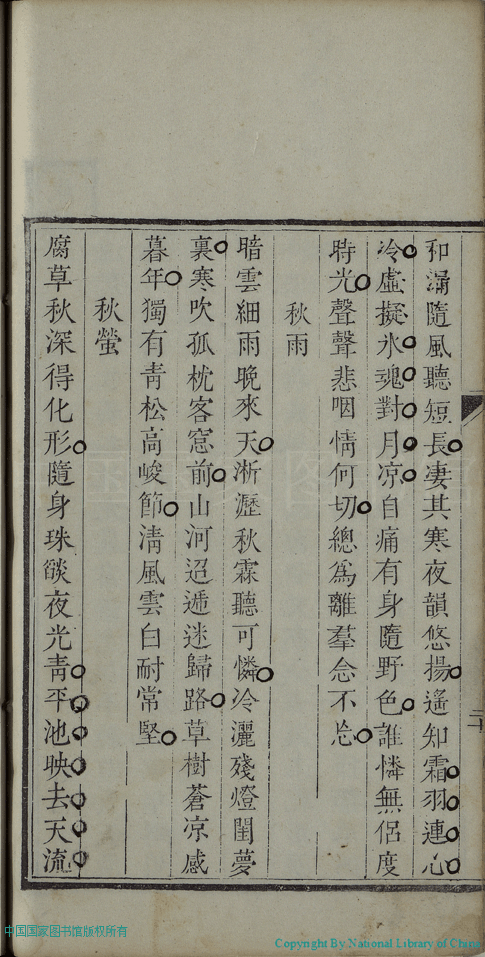 和漏隨風聽短長凄其寒夜韻悠揚遙知霜羽連心
冷虛擬氷魂對月凉自痛有身隨野色誰憐無侶度
時光聲聲悲咽情何切總爲離羣念不忘
秋雨
暗雲細雨晚來天淅瀝秋霖聽可憐冷灑殘燈閨夢
裏寒吹孤枕客窓前山河迢遞迷歸路草樹蒼凉感
暮年獨有靑松高峻節淸風雲白耐常堅
秋螢
腐草秋深得化形隨身珠燄夜光靑平池映去天流
二十
中国国家图书馆版权所有
Copyright By National Library of China